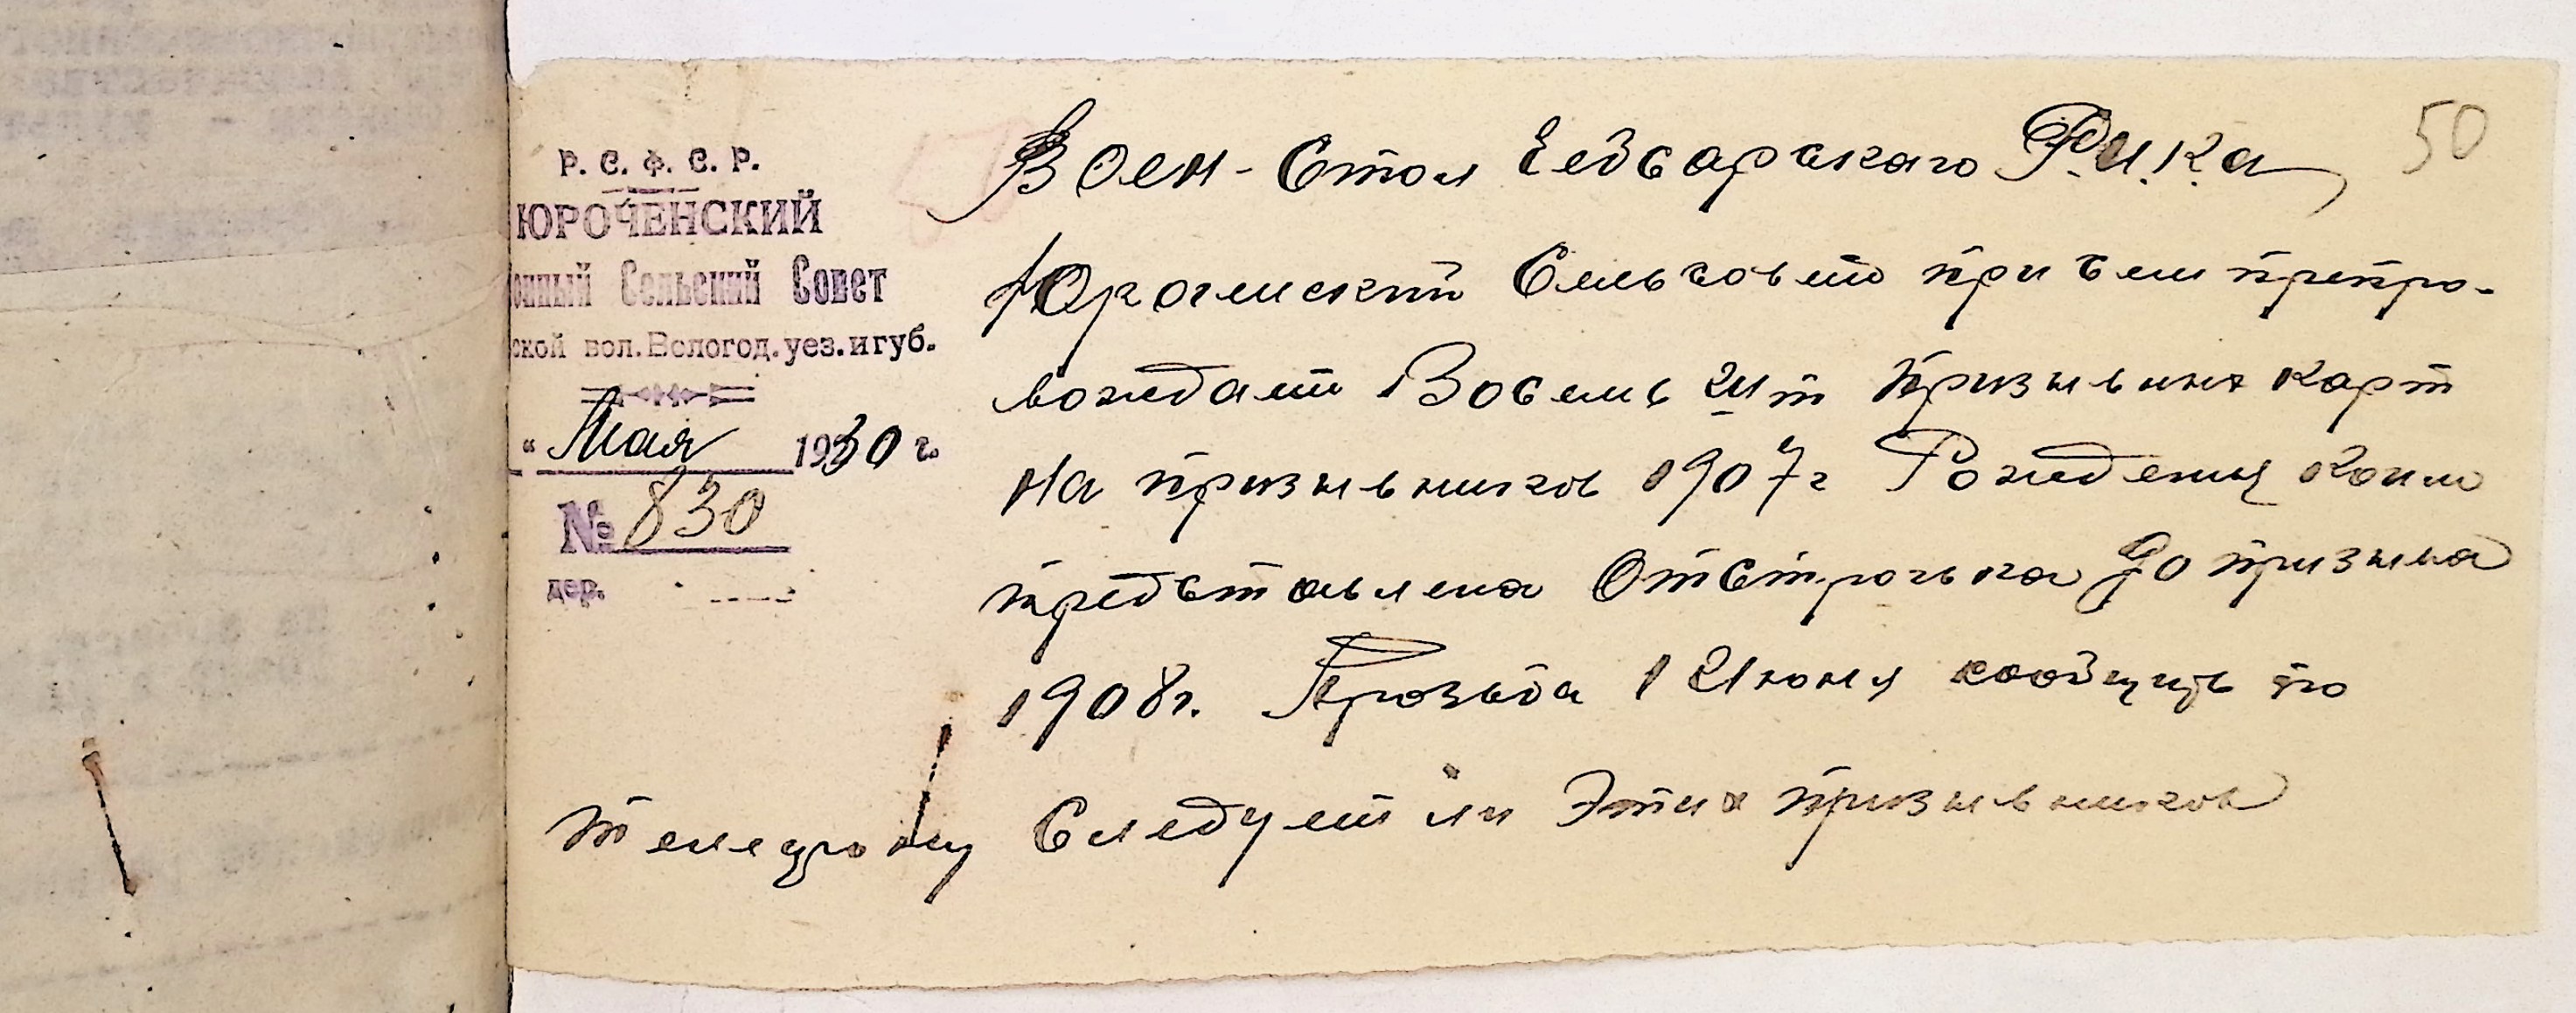 50
Р. С. Ф. С. Р.
ЮРОЧЕНСКИЙ
Сельский Совет
ской вол. Вологод. уез. и губ.
" Мая 1930 г.
№ 830
дер.
Воен-Стол Ведварскаго Р.И.К.а
Юроченский Сельсовет при сем препро-
вождает Восемь шт призывных карт
На призывников 1907г Рождения Коим
представлена Отстрочька До призыва
1908г. Прозьба 1 Июня сообщить по
телефону Следует ли Этих призывников